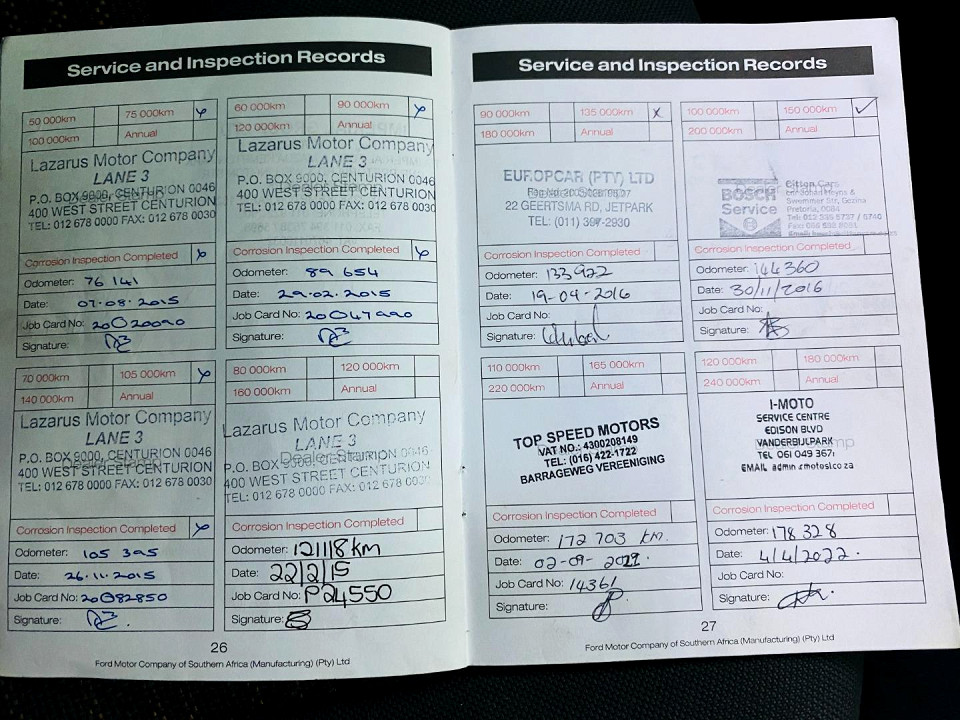 Service and Inspection Records
50 000km 75 000km
100 000km Annual
Lazarus Motor Company
LANE 3
P.O. BOX 9000, CENTURION 0046
400 WEST STREET CENTURION
TEL: 012 678 0000 FAX: 012 678 0030
Corrosion Inspection Completed
Odometer: 76 141
Date: 07.08.2015
Job Card No: 20020090
Signature:
60 000km 90 000km
120 000km Annual
Lazarus Motor Company
LANE 3
P.O. BOX 9000, CENTURION 0046
400 WEST STREET CENTURION
TEL: 012 678 0000 FAX: 012 678 0030
Corrosion Inspection Completed
Odometer: 89 654
Date: 29.02.2015
Job Card No: 20047990
Signature:
70 000km 105 000km
140 000km Annual
Lazarus Motor Company
LANE 3
P.O. BOX 9000, CENTURION 0046
400 WEST STREET CENTURION
TEL: 012 678 0000 FAX: 012 678 0030
Corrosion Inspection Completed
Odometer: 105 395
Date: 26.11.2015
Job Card No: 20082850
Signature:
80 000km 120 000km
160 000km Annual
Lazarus Motor Company
LANE 3
Dealer Stamp
P.O. BOX 9000, CENTURION 0046
400 WEST STREET CENTURION
TEL: 012 678 0000 FAX: 012 678 0030
Corrosion Inspection Completed
Odometer: 121118km
Date: 22/2/15
Job Card No: P24550
Signature:
26
Ford Motor Company of Southern Africa (Manufacturing) (Pty) Ltd
Service and Inspection Records
90 000km 135 000km X
180 000km Annual
EUROPCAR (PTY) LTD
22 GEERTSMA RD, JETPARK
TEL: (011) 397-2930
Corrosion Inspection Completed
Odometer: 133922
Date: 19-04-2016
Job Card No:
Signature:
100 000km 150 000km ✓
200 000km Annual
BOSCH
Service
Citton Cars
Swemmer Str, Gezina
Pretoria, 0084
Tel: 012 335 5737 / 5740
Corrosion Inspection Completed
Odometer: 144360
Date: 30/11/2016
Job Card No:
Signature:
110 000km 165 000km
220 000km Annual
TOP SPEED MOTORS
VAT NO.: 4300208149
TEL: (016) 422-1722
BARRAGEWEG VEREENIGING
Corrosion Inspection Completed
Odometer: 172 703 km.
Date: 02-09-
Job Card No: 14361
Signature:
120 000km 180 000km
240 000km Annual
I-MOTO
SERVICE CENTRE
EDISON BLVD
VANDERBIJLPARK
TEL 061 049 3671
EMAIL admin
Corrosion Inspection Completed
Odometer: 178 328
Date: 4/4/2022.
Job Card No:
Signature:
27
Ford Motor Company of Southern Africa (Manufacturing) (Pty) Ltd